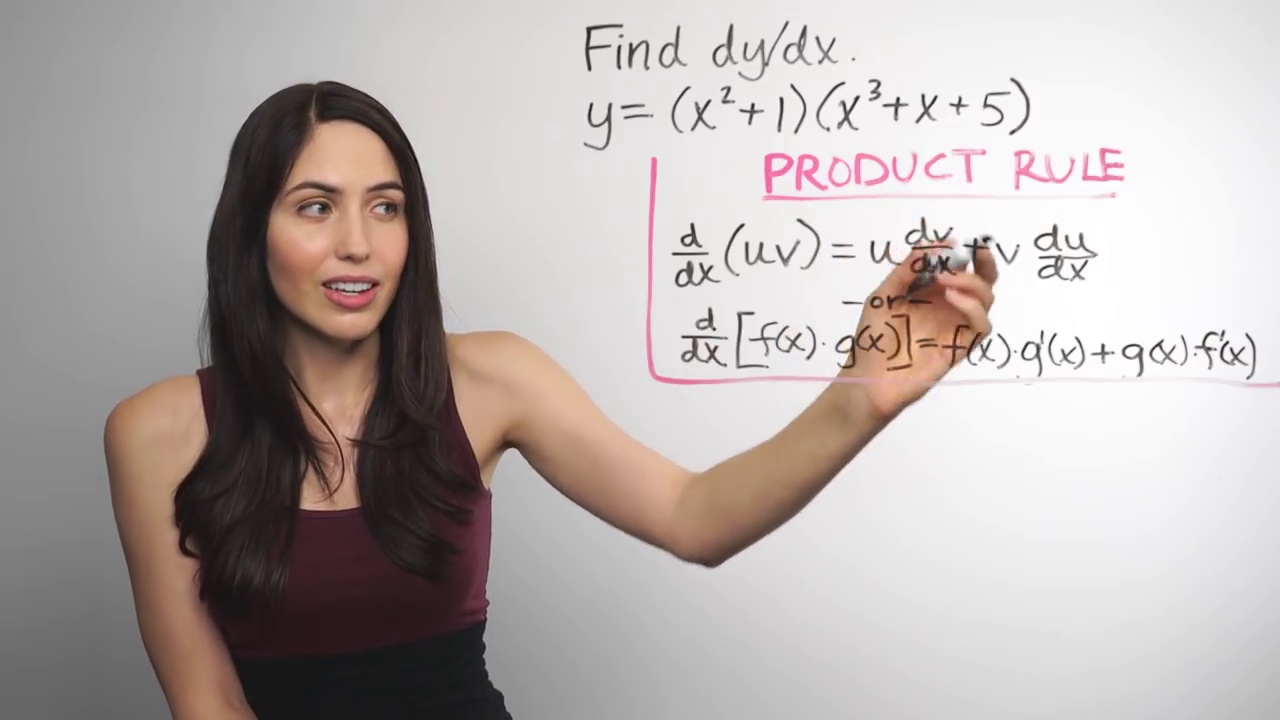 Find dy/dx.
y = (x²+1)(x³+x+5)
PRODUCT RULE
d/dx (uv) = u dv/dx + v du/dx
-or-
d/dx [f(x)·g(x)] = f(x)·g'(x)+g(x)·f'(x)